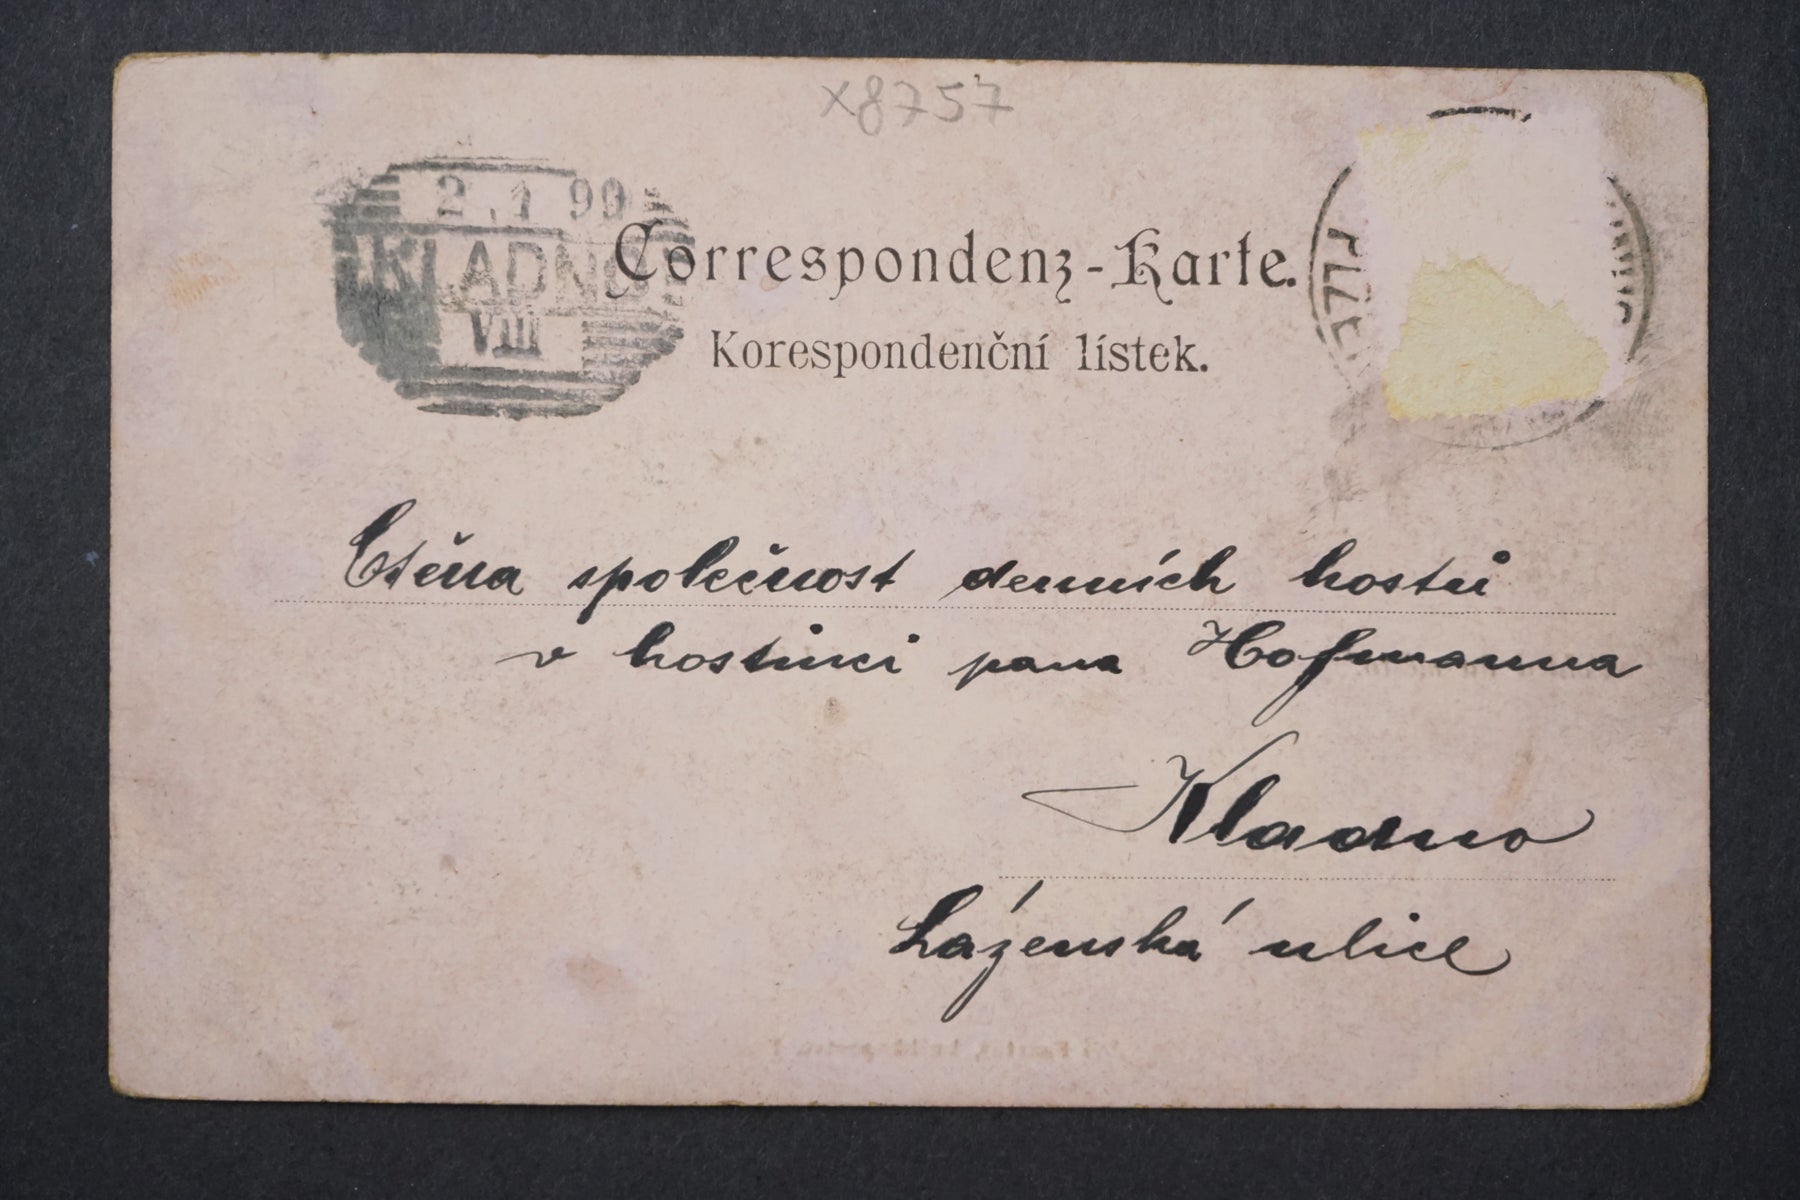 x8757
2.1 99
KLADNO
VIII
Correspondenz-Karte.
Korespondenční lístek.
PLZE
Ctěná společnost denních hostů
v hostinci pana Hofmanna
Kladno
Lázenská ulice